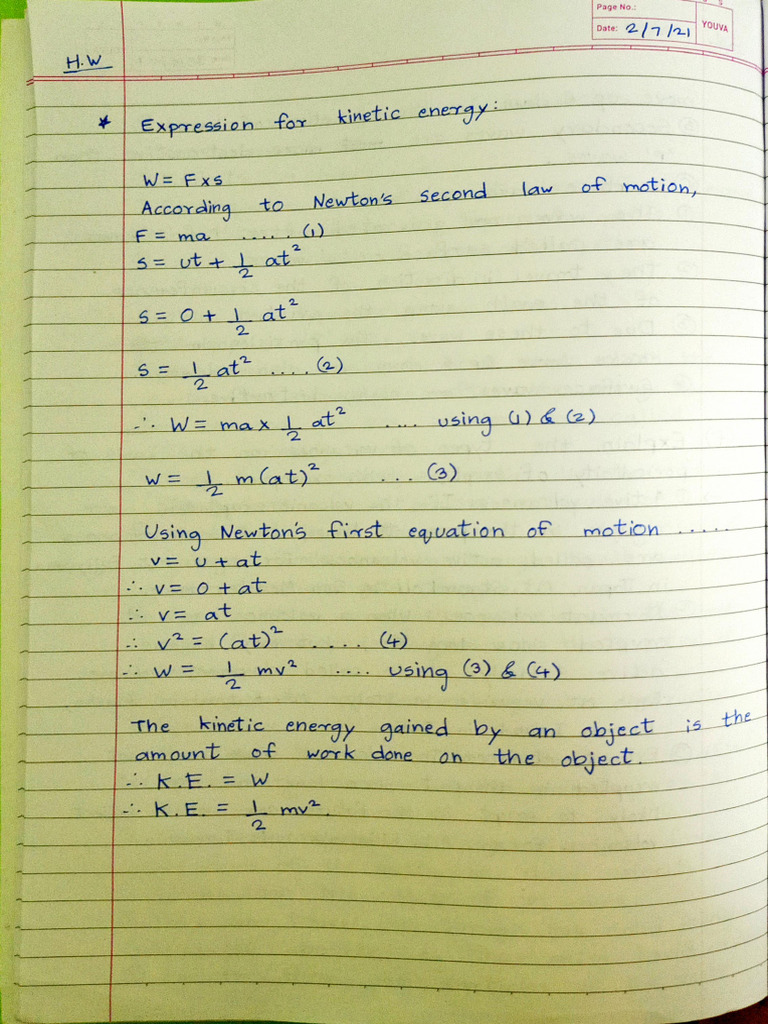 Page No.:
Date: 2/7/21
YOUVA
H.W
* Expression for kinetic energy:
W = F × s
According to Newton's second law of motion,
F = ma ...... (1)
s = ut + 1/2 at²
s = 0 + 1/2 at²
s = 1/2 at² .... (2)
∴ W = ma × 1/2 at² .... using (1) & (2)
W = 1/2 m(at)² ... (3)
Using Newton's first equation of motion .....
v = u + at
∴ v = 0 + at
∴ v = at
∴ v² = (at)² .... (4)
∴ W = 1/2 mv² .... using (3) & (4)
The kinetic energy gained by an object is the
amount of work done on the object.
∴ K.E. = W
∴ K.E. = 1/2 mv².